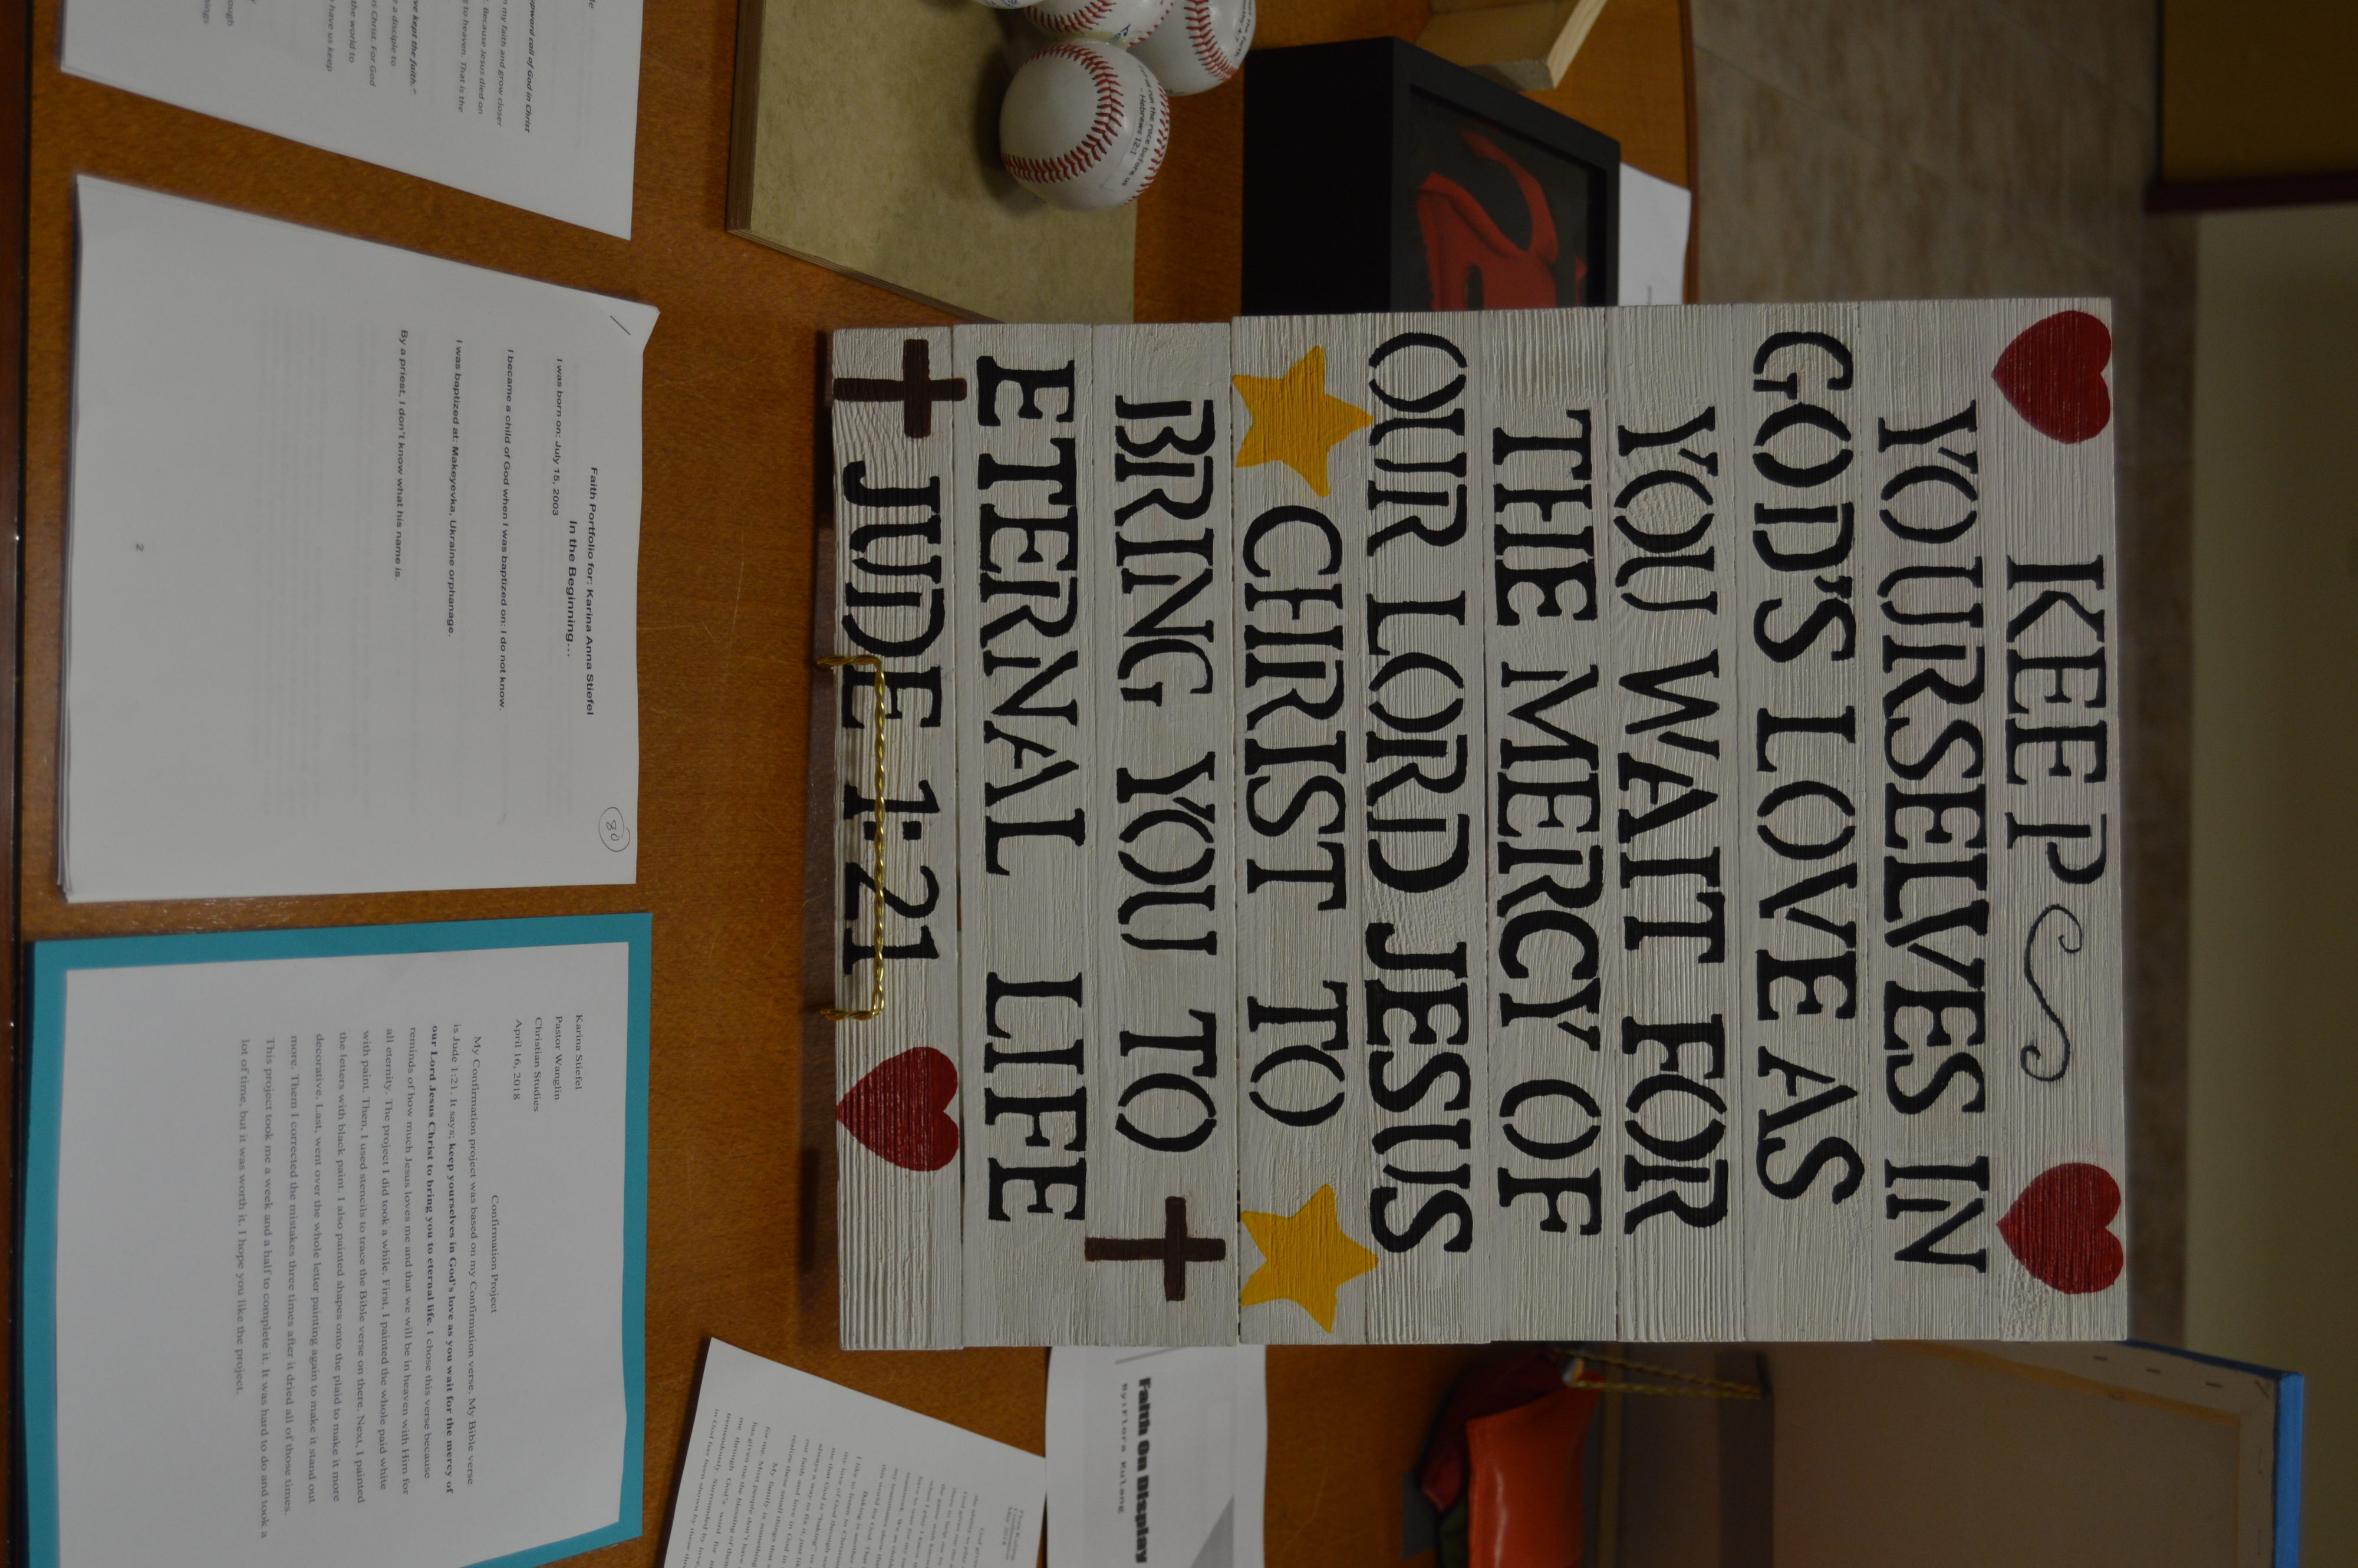 KEEP
YOURSELVES IN
GOD'S LOVE AS
YOU WAIT FOR
THE MERCY OF
OUR LORD JESUS
CHRIST TO
BRING YOU TO
ETERNAL LIFE
JUDE 1:21
run the race before us
- Hebrews 12:1
upward call of God in Christ
my faith and grow closer
Because Jesus died on
to heaven. That is the
kept the faith."
a disciple to
Christ. For God
the world to
have us keep
80
Faith Portfolio for: Karina Anna Stiefel
In the Beginning...
I was born on: July 15, 2003
I became a child of God when I was baptized on: I do not know.
I was baptized at: Makeyevka, Ukraine orphanage.
By a priest, I don't know what his name is.
2
Karina Stiefel
Pastor Wanglin
Christian Studies
April 16, 2018
Confirmation Project
My Confirmation project was based on my Confirmation verse. My Bible verse
is Jude 1:21. It says; keep yourselves in God's love as you wait for the mercy of
our Lord Jesus Christ to bring you to eternal life. I chose this verse because
reminds of how much Jesus loves me and that we will be in heaven with Him for
all eternity. The project I did took a while. First, I painted the whole paid white
with paint. Then, I used stencils to trace the Bible verse on there. Next, I painted
the letters with black paint. I also painted shapes onto the plaid to make it more
decorative. Last, went over the whole letter painting again to make it stand out
more. Them I corrected the mistakes three times after it dried all of those times.
This project took me a week and a half to complete it. It was hard to do and took a
lot of time, but it was worth it. I hope you like the project.
Faith On Display
By: Flora Kulang